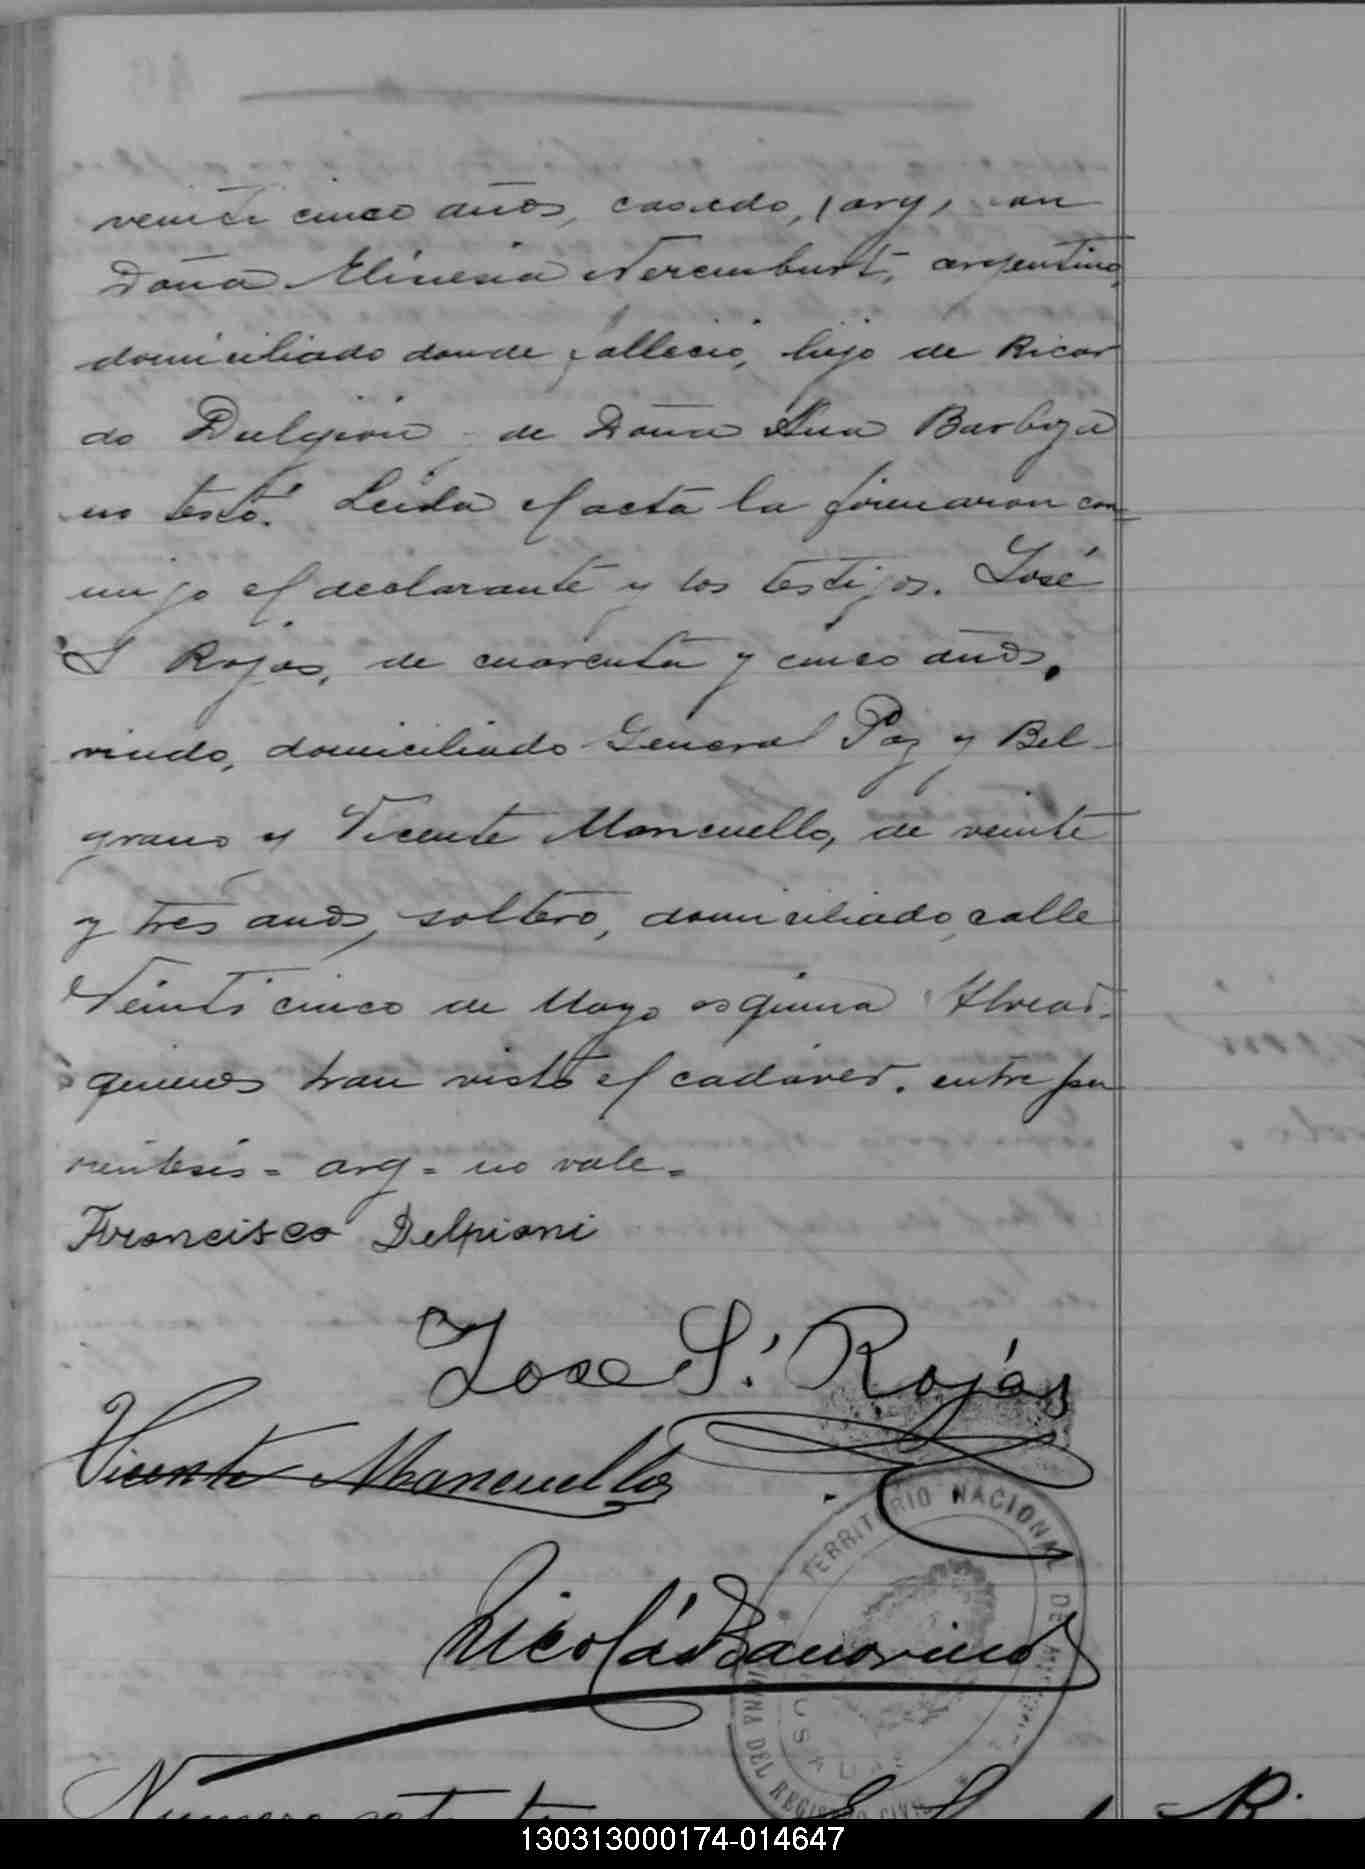 veinte cinco años, casado, (arg) con
Doña Elinesia Neremburt, argentino,
domiciliado donde falleció, hijo de Ricar
do Dulgioni, de Doña Ana Barboza
no testó. Leída el acta la firmaron con
migo el declarante y los testigos. José
S Rojas, de cuarenta y cinco años,
viudo, domiciliado General Paz y Bel-
grano y Vicente Mancuello, de veinte
y tres años, soltero, domiciliado calle
Veinti cinco de Mayo esquina Alvear.
quienes han visto el cadáver. entre pa
réntesis = arg = no vale =
Francisco Delpiani
Jose S. Rojas
Vicente Mancuello
TERRITORIO NACIONAL DE
Nicolás
DEL REGISTRO CIVIL
Numero
130313000174-014647